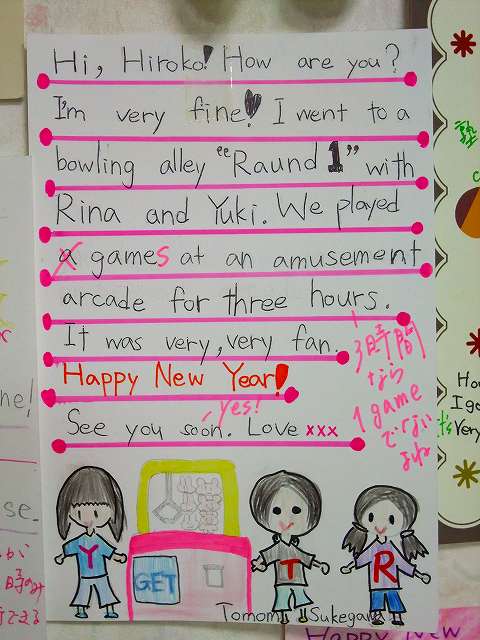 Hi, Hiroko! How are you?
I'm very fine! I went to a
bowling alley "Raund 1" with
Rina and Yuki. We played
a games at an amusement
arcade for three hours.
It was very, very fan.
3時間
なら
1 game
でないよね
Happy New Year!
yes!
See you soon. Love xxx
Y
GET
T
R
Tomomi Sukegawa
Happy New